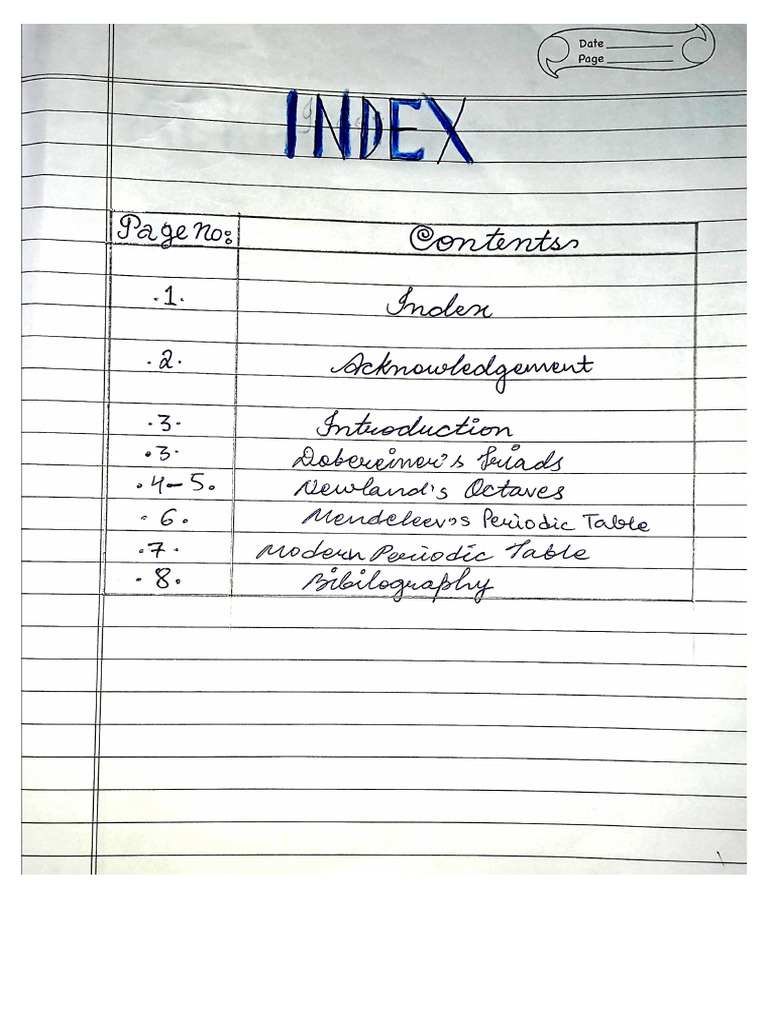 Date
Page
INDEX
Page No: Contents
.1. Index
.2. Acknowledgement
.3. Introduction
.3. Dobereiner's Triads
.4-5. Newland's Octaves
.6. Mendeleev's Periodic Table
.7. Modern Periodic Table
.8. Bibilography